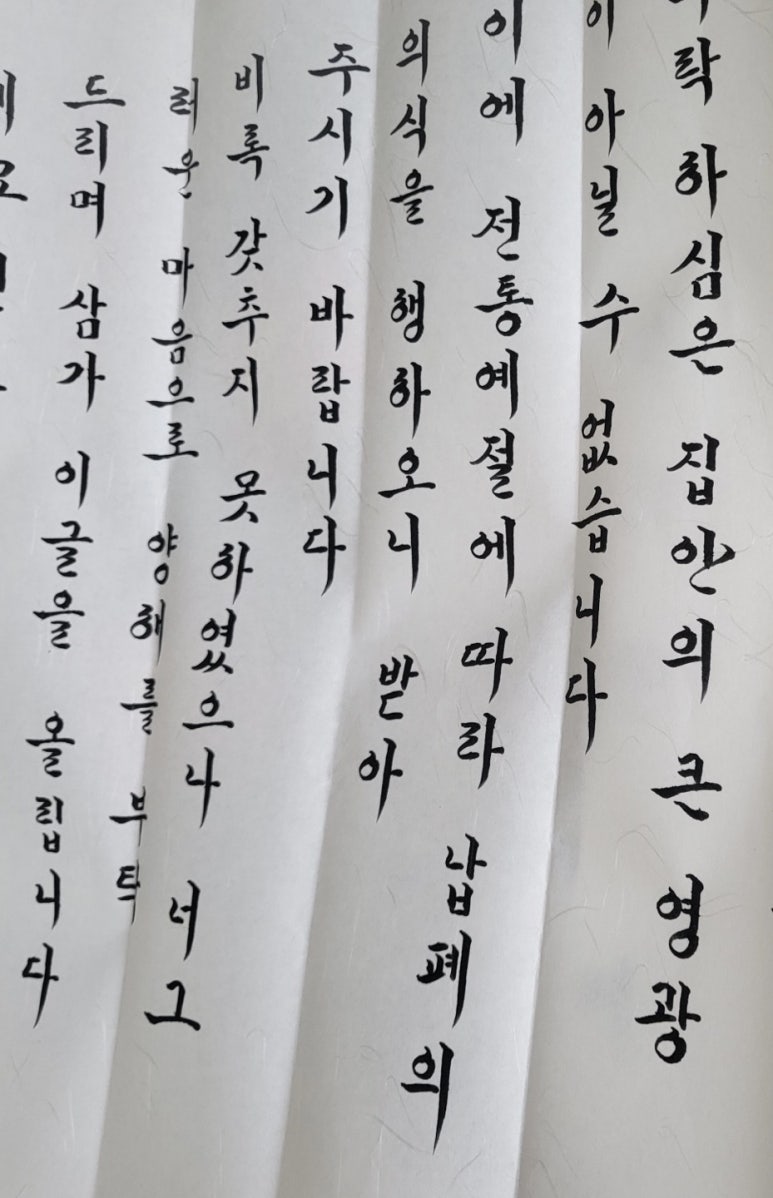 락 하심은 집안의 큰 영광
이 아닐 수 없습니다
이에 전통예절에 따라 납폐의
의식을 행하오니 받아
주시기 바랍니다
비록 갖추지 못하였으나 너그
러운 마음으로 양해를 부탁
드리며 삼가 이글을 올립니다